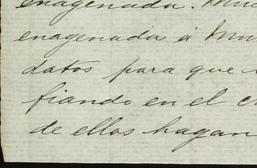 enagenada.
enagenada á
datos para que
fiando en el
de ellos hagan